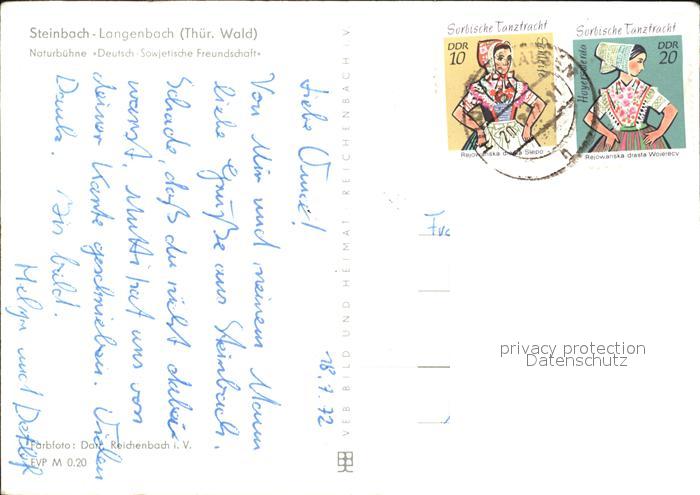 Steinbach-Langenbach (Thür. Wald)
Naturbühne »Deutsch-Sowjetische Freundschaft«
18.7.72
Liebe
Von Mir und meinem Mann
liebe Grüße aus Steinbach.
Schade, daß du nicht dabei
warst, Mutti hat uns von
deiner Karte geschrieben. Vielen
Dank. Bis bald.
und Detlef
Farbfoto: Darr, Reichenbach i. V.
EVP M 0.20
VEB BILD UND HEIMAT REICHENBACH i. V
Sorbische Tanztracht
DDR
10
Schleife
Rejowanska drasta Slepo
Sorbische Tanztracht
DDR
20
Hoyerswerda
Rejowanska drasta Wojerecy
privacy protection
Datenschutz